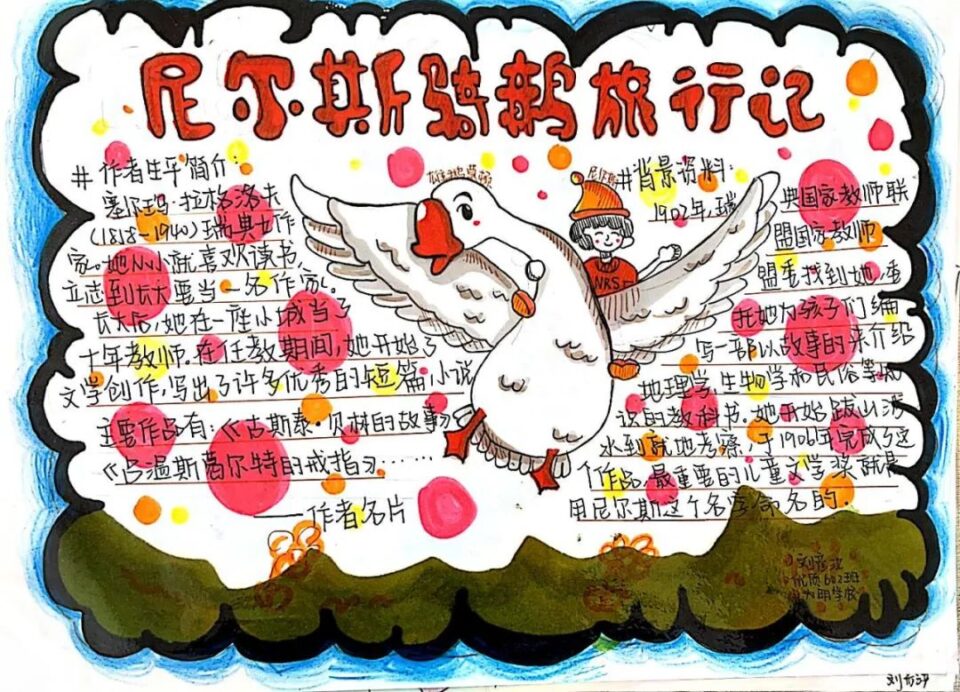 尼尔斯骑鹅旅行记
#作者生平简介:
塞尔玛·拉格洛夫
(1858-1940)瑞典女作
家。她从小就喜欢读书
立志到长大要当一名作家。
长大后,她在一座小城当了
十年教师.在任教期间,她开始了
文学创作,写出了许多优秀的短篇小说
主要作品有:《古斯泰·贝林的故事》
《吕温斯葛尔特的戒指》……
——作者名片
尼尔斯
NRS
#背景资料:
1902年,瑞典国家教师联
盟国家教师
盟委找到她,委
托她为孩子们编
写一部以故事的来介绍
地理学,生物学和民俗等知
识的教科书.她开始跋山涉
水到就地考察.于1906年完成了这
个作品.最重要的儿童文学奖就是
用尼尔斯这个名字命名的.